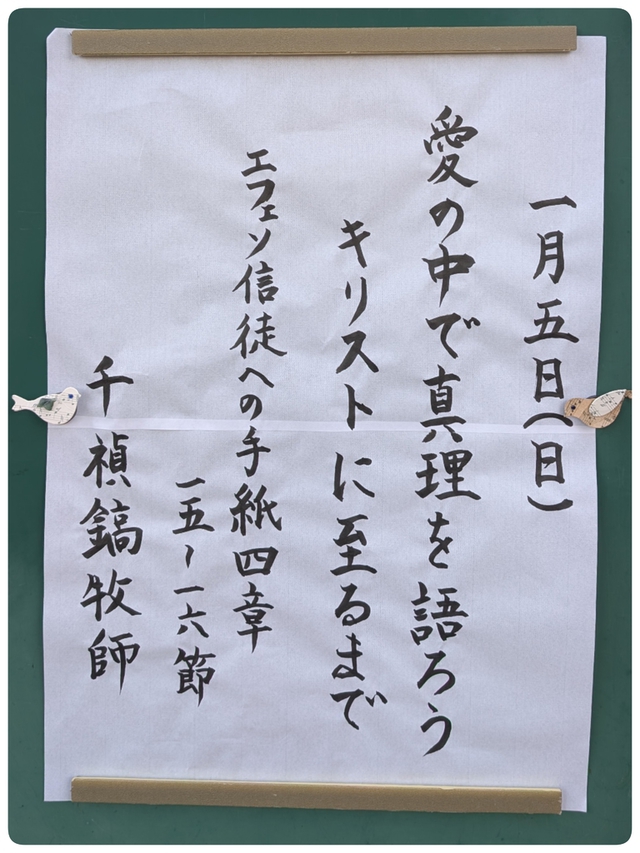 一月五日(日)
愛の中で真理を語ろう
キリストに至るまで
エフェソ信徒への手紙四章
一五〜一六節
千禎鎬牧師